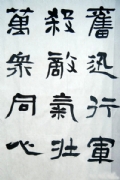 奮迅行軍
殺敵氣壯
萬眾同心